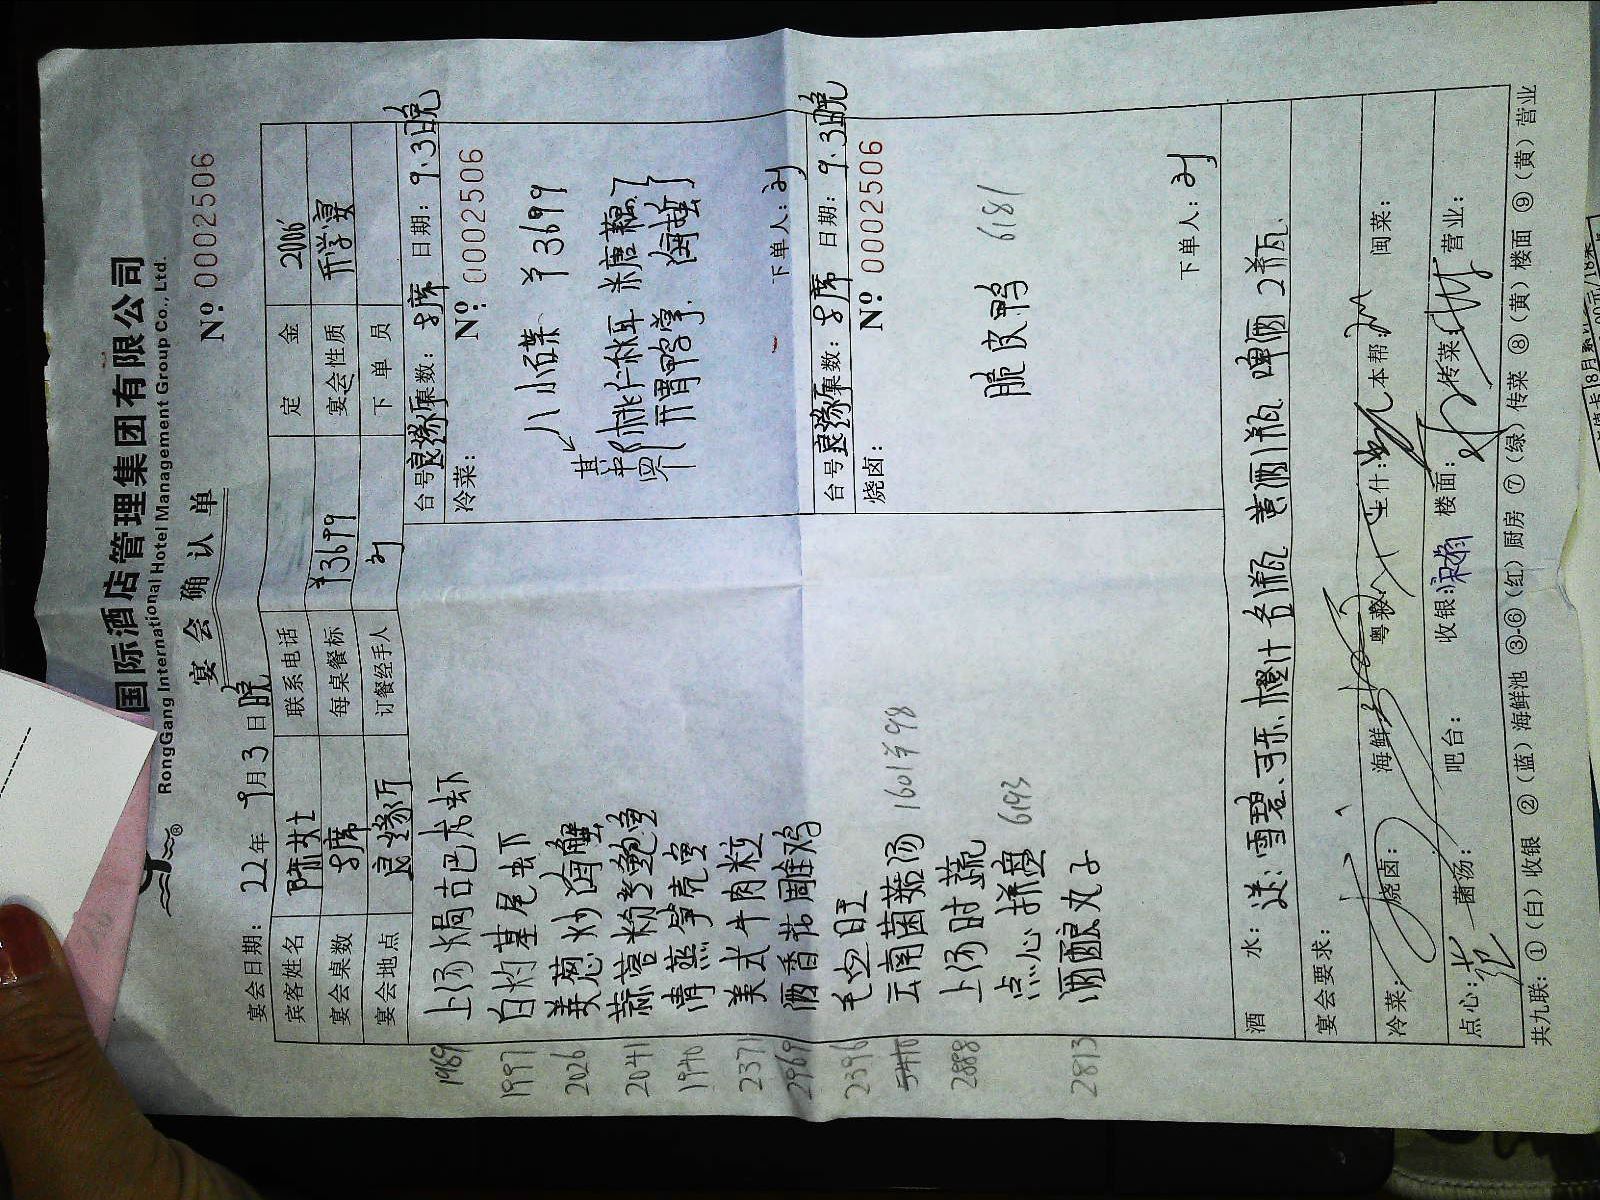 国际酒店管理集团有限公司
RongGang International Hotel Management Group Co., Ltd.
宴会确认单
Nº 0002506
宴会日期: 22年9月3日晚
宾客姓名 陈女士 联系电话 定金 2006
宴会桌数 8席 每桌餐标 ¥3699 宴会性质 开学宴
宴会地点 良缘厅 订餐经手人 刘 下单员
1989 上汤焗古巴龙虾
1997 白灼基尾虫下
2026 姜葱炒海蟹
2041 蒜蓉粉
1940 清蒸笋壳鱼
2371 美式牛肉粒
2969 酒香花雕鸡
2396 毛血旺
云南菌菇汤 1601 ¥98
2888 上汤时蔬
点心拼盘 6193
2813 酒酿丸子
台号 良缘厅 桌数: 8席 日期: 9.3日晚
冷菜: Nº: 0002506
八小碟 ¥3699
桃仁秋耳 米唐藕
鸭掌 海蜇
下单人: 刘
台号 良缘厅 桌数: 8席 日期: 9.3日晚
烧卤: Nº: 0002506
脆皮鸭 6181
下单人: 刘
酒水: 送: 雪碧.可乐.橙汁各1瓶 黄酒1瓶 啤酒2瓶.
宴会要求:
冷菜: 烧卤: 海鲜: 粤菜: 上什: 本帮: 闽菜:
点心: 菌汤: 吧台: 收银: 楼面: 传菜: 营业:
共九联: ①(白)收银 ②(蓝)海鲜池 ③-⑥(红)厨房 ⑦(绿)传菜 ⑧(黄)楼面 ⑨(黄)营业